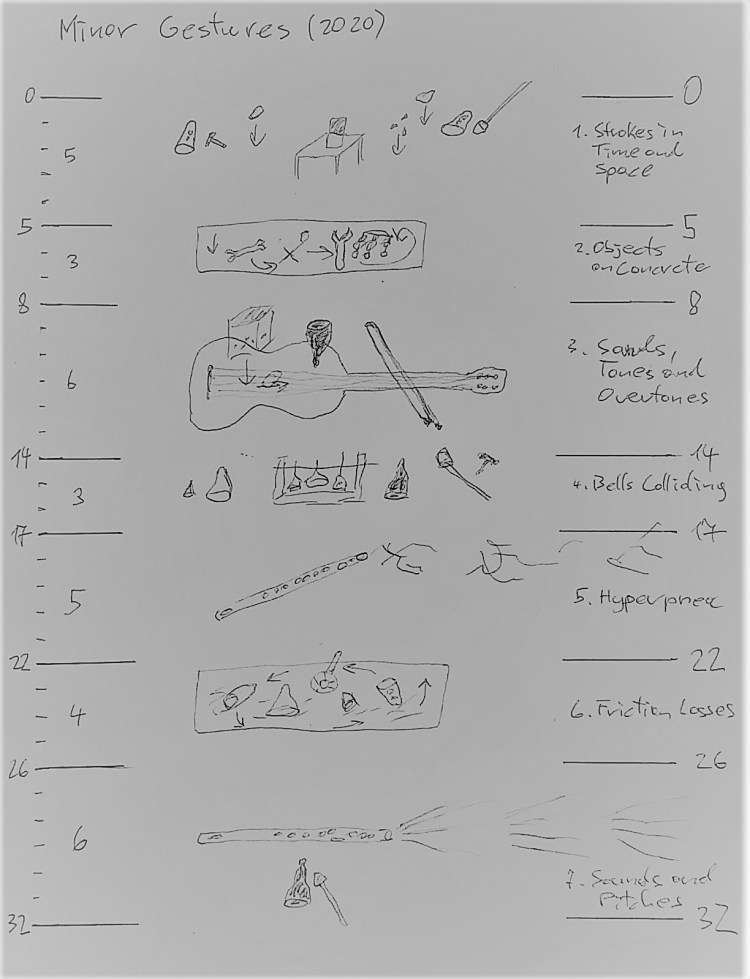 Minor Gestures (2020)
0
0
5
1. Strokes in
Time and
Space
5
5
3
2. Objects
on Concrete
8
8
6
3. Sands,
Tones and
Overtones
14
14
3
4. Bells Colliding
17
17
5
5. Hyperpnea
22
22
4
6. Friction Losses
26
26
6
7. Sounds and
Pitches
32
32